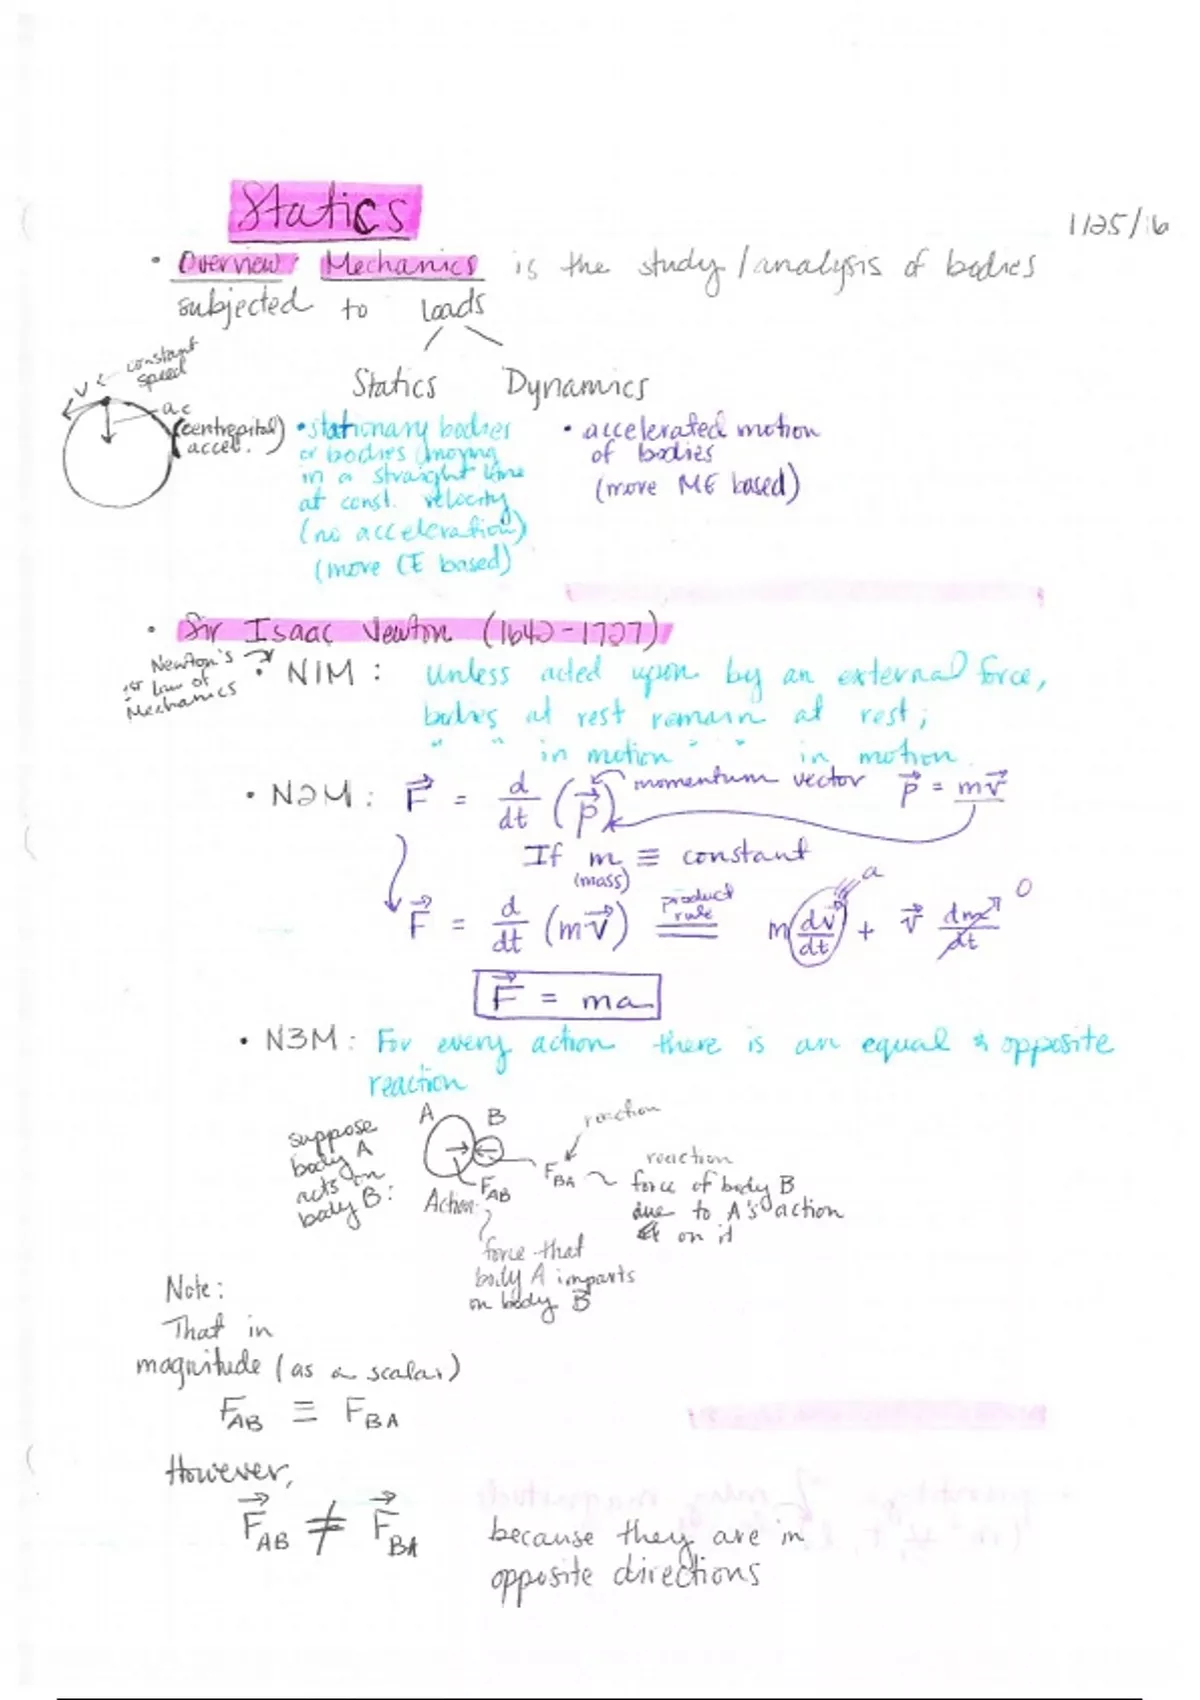 Statics
1/25/16
• Overview: Mechanics is the study/analysis of bodies
subjected to loads
Statics Dynamics
v ← constant
speed
ac
(centrepital)
accel.
• stationary bodies
or bodies moving
in a straight line
at const. velocity
(no acceleration)
(more CE based)
• accelerated motion
of bodies
(more ME based)
• Sir Isaac Newton (1642-1727)
Newton's
1st law of
Mechanics
• N1M: Unless acted upon by an external force,
bodies at rest remain at rest;
" " in motion " " in motion.
• N2M: F⃗ = d/dt (p⃗) momentum vector p⃗ = mv⃗
If m ≡ constant
(mass)
F⃗ = d/dt (mv⃗) product rule = m dv⃗/dt + v⃗ dm/dt
a
0
F⃗ = ma
• N3M: For every action there is an equal & opposite
reaction
suppose
body A
acts on
body B:
A B
reaction
Action: FAB
FBA ~ reaction
force of body B
due to A's action
on it
force that
body A imparts
on body B
Note:
That in
magnitude (as a scalar)
FAB ≡ FBA
However,
F⃗AB ≠ F⃗BA because they are in
opposite directions